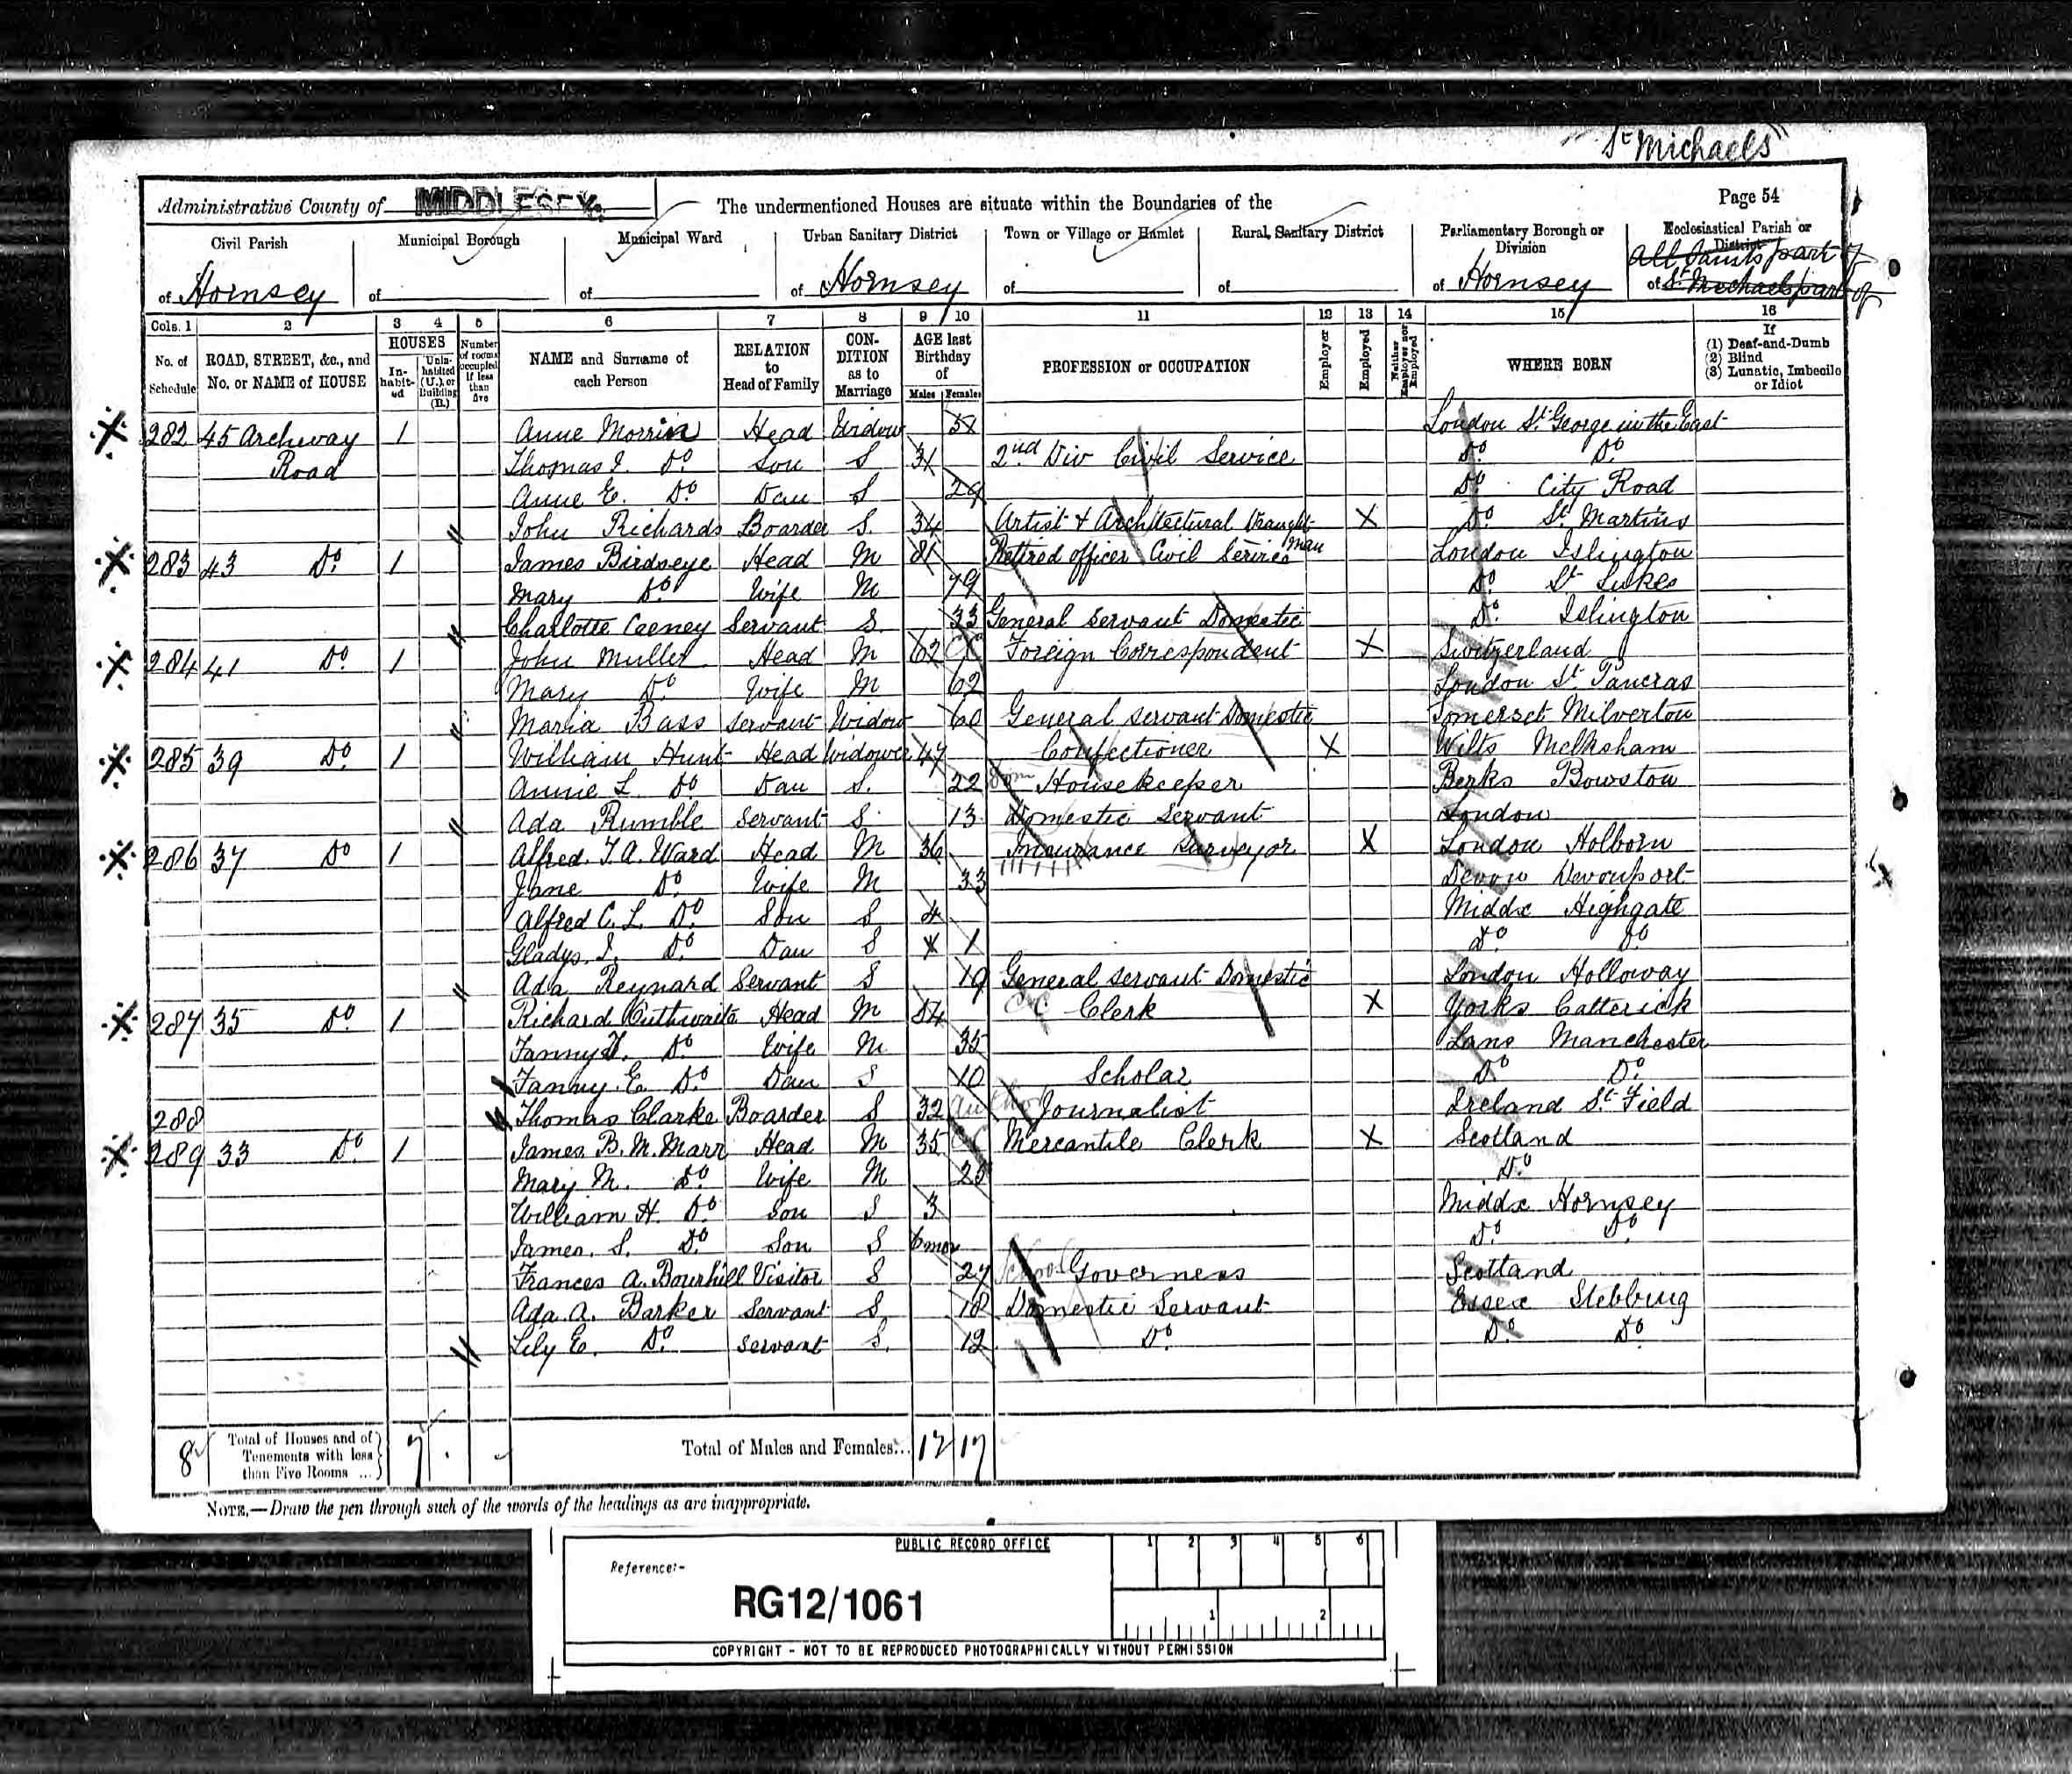 St Michaels
Administrative County of MIDDLESEX. The undermentioned Houses are situate within the Boundaries of the Page 54
Civil Parish Municipal Borough Municipal Ward Urban Sanitary District Town or Village or Hamlet Rural Sanitary District Parliamentary Borough or Division Ecclesiastical Parish or District
of Hornsey of of of Hornsey of of of Hornsey All Saints part of
of St Michaels part of
Cols. 1 2 3 4 5 6 7 8 9 10 11 12 13 14 15 16
No. of Schedule ROAD, STREET, &c., and No. or NAME of HOUSE HOUSES In-habit-ed Unin-habited (U.), or Building (B.) Number of rooms occupied if less than five NAME and Surname of each Person RELATION to Head of Family CON-DITION as to Marriage AGE last Birthday of Males Females PROFESSION or OCCUPATION Employer Employed Neither Employer nor Employed WHERE BORN If (1) Deaf-and-Dumb (2) Blind (3) Lunatic, Imbecile or Idiot
282 45 Archway Road 1 Anne Morrin Head Widow 58 London St. George in the East
Thomas J. Do Son S 31 2nd Div Civil Service Do Do
Anne E. Do Dau S 29 Do City Road
John Richards Boarder S. 34 Artist & Architectural Draughtman X Do St. Martins
283 43 Do 1 James Birdseye Head M 81 Retired officer Civil Service London Islington
Mary Do Wife M 79 Do St Lukes
Charlotte Ceeney Servant S. 33 General Servant Domestic Do Islington
284 41 Do 1 John Muller Head M 62 Foreign Correspondent X Switzerland
Mary Do Wife M 62 London St. Pancras
Maria Bass Servant Widow 60 General Servant Domestic Somerset Milverton
285 39 Do 1 William Hunt Head Widower 47 Confectioner X Wilts Melksham
Annie L Do Dau S. 22 Dom Housekeeper Berks Bowston
Ada Rumble Servant S. 13 Domestic Servant London
286 37 Do 1 Alfred. T. A. Ward Head M 36 Insurance Surveyor X London Holborn
Jane Do Wife M 33 Devon Devonport
Alfred C. L. Do Son S 4 Middx Highgate
Gladys. I. Do Dau S X 1 Do Do
Ada Reynard Servant S 19 General Servant Domestic London Holloway
287 35 Do 1 Richard Outhwaite Head M 54 CC Clerk X Yorks Catterick
Fanny Do Wife M 35 Lans Manchester
Fanny. E. Do Dau S 10 Scholar Do Do
288 Thomas Clarke Boarder S 32 Author Journalist Ireland St. Field
289 33 Do 1 James B. M. Marr Head M 35 Mercantile Clerk X Scotland
Mary M. Do Wife M 25 Do
William H. Do Son S 3 Middx Hornsey
James. S. Do Son S 6 mos Do Do
Frances A. Bourhill Visitor S 27 School Governess Scotland
Ada. A. Barker Servant S. 18 Domestic Servant Essex Stebbing
Lily E. Do Servant S. 12 Do Do Do
8 Total of Houses and of Tenements with less than Five Rooms ... 7 Total of Males and Females... 12 17
NOTE.—Draw the pen through such of the words of the headings as are inappropriate.
PUBLIC RECORD OFFICE 1 2 3 4 5 6
Reference:-
RG12/1061 1 2
COPYRIGHT - NOT TO BE REPRODUCED PHOTOGRAPHICALLY WITHOUT PERMISSION